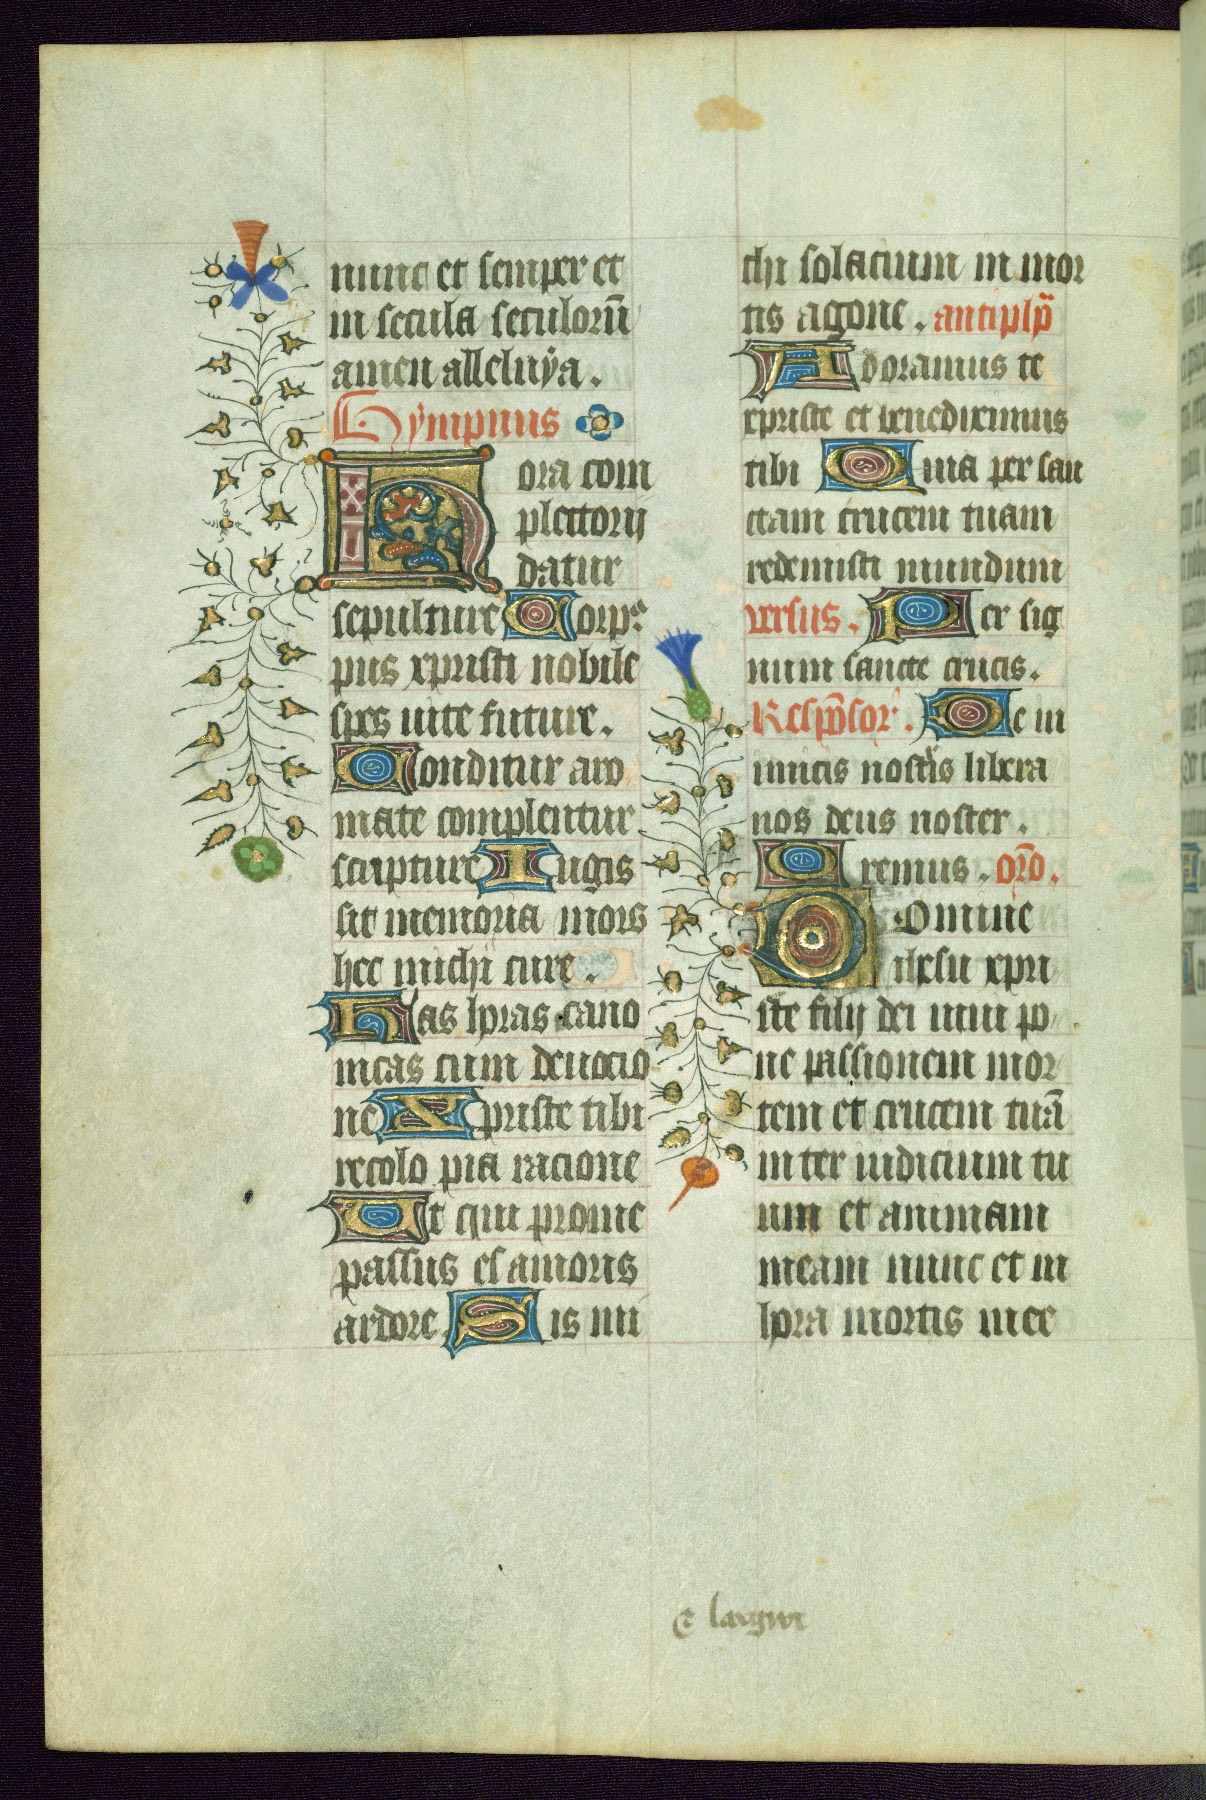 nunc et semper et
in secula seculorū
amen alleluÿa.
Hÿmpnus
Hora com
pletorij
datur
sepulture Corpᵃ
pus xpristi nobile
spes uite future.
Conditur aro
mate complentur
scripture Iugis
sit memoria mors
hec michi cure.
Has horas cano
nicas cum deuocio
ne Xpriste tibi
recolo pia racione
Ut qui prome
passus es amoris
ardore. Sis mi
chi solacium in mor
tis agone. antiph̄
Adoramus te
xpriste et benediximus
tibi Quia per san
ctam crucem tuam
redemisti mundum
versus. Per sig
num sancte crucis.
Respōsor. De in
imicis nostris libera
nos deus noster.
Oremus. orō.
Domine
ihesu xpri
ste filij dei uiui po
ne passionem mor
tem et crucem tuā
inter iudicium tu
um et animam
meam nunc et in
hora mortis mee